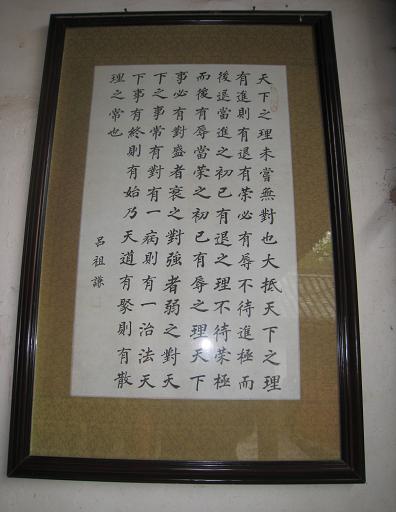 天下之理未嘗無對也大抵天下之理
有進則有退有榮必有辱不待進極而
後退當進之初已有退之理不待榮極
而後有辱當榮之初已有辱之理天下
事必有對盛者衰之對強者弱之對天
下之事常有對有一病則有一治法天
下事有終則有始乃天道有聚則有散
理之常也
呂祖謙